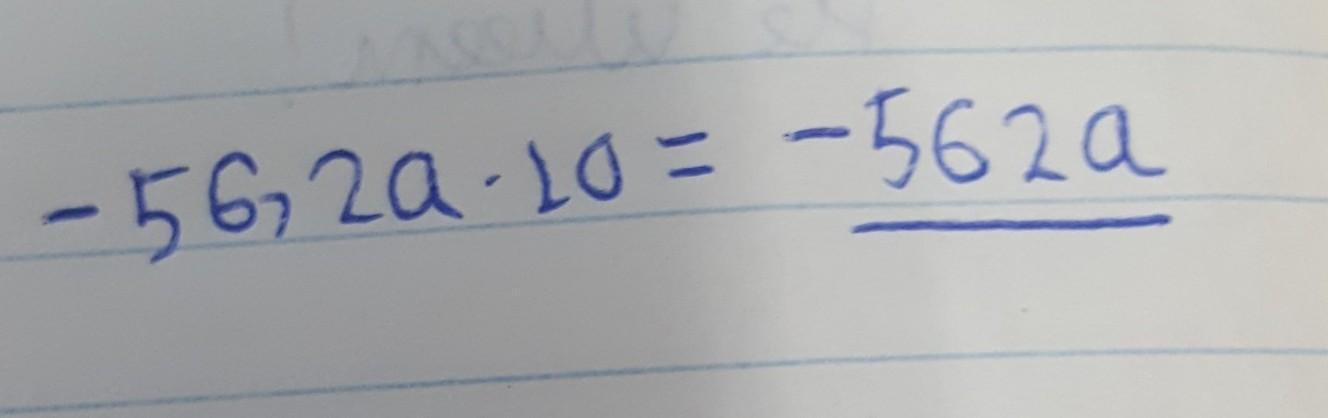 -56,2a·10 = -562a